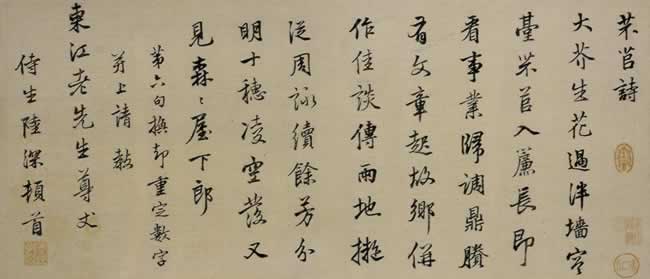 芣苢詩
大芥生花過泮墻宮
臺芣苢入簾長即
看事業歸調鼎賸
有文章起故鄉併
作佳談傳兩地擬
從周詠續餘芳分
明十穗凌空落又
見森〻屋下郎
第六句換却重定數字
并上請教
東江老先生尊丈
侍生陸深頓首